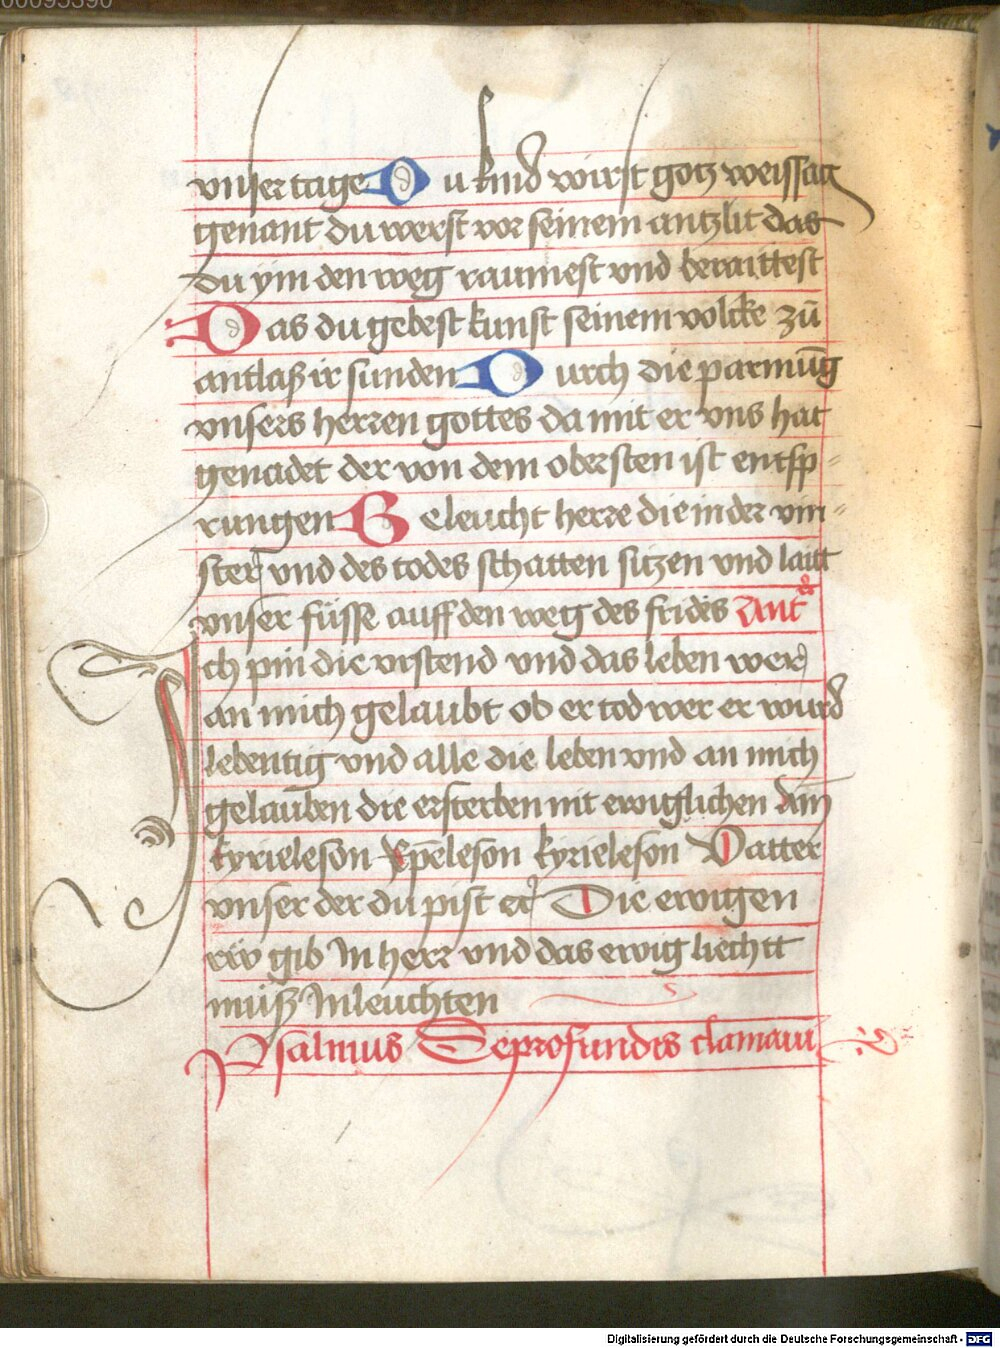 00095390
vnser tage Du kind wirst gotz weissag
genant du werst vor seinem antzlit das
du ym den weg raumest vnd beraittest
Das du gebest kunst seinem volcke zū
antlaß ir sunden Durch die parmūg
vnsers herren gottes da mit er vns hat
genadet der von dem obersten ist entsp-
rungen Beleucht herre die in der vin-
ster vnd des todes schatten sitzen vnd laitt
vnser füsse auff den weg des frides Ant
Ich pin die vrstend vnd das leben wer
an mich gelaubt ob er tod wer er wurd
lebentig vnd alle die leben vnd an mich
gelauben die ersterben nit ewiglichen Am̄
kyrieleson Xp̄eleson kyrieleson Vatter
vnser der du pist etc Die ewigen
rüw gib In herr vnd das ewig liechtt
müß In leuchten
Psalmus De profundis clamaui
Digitalisierung gefördert durch die Deutsche Forschungsgemeinschaft - DFG